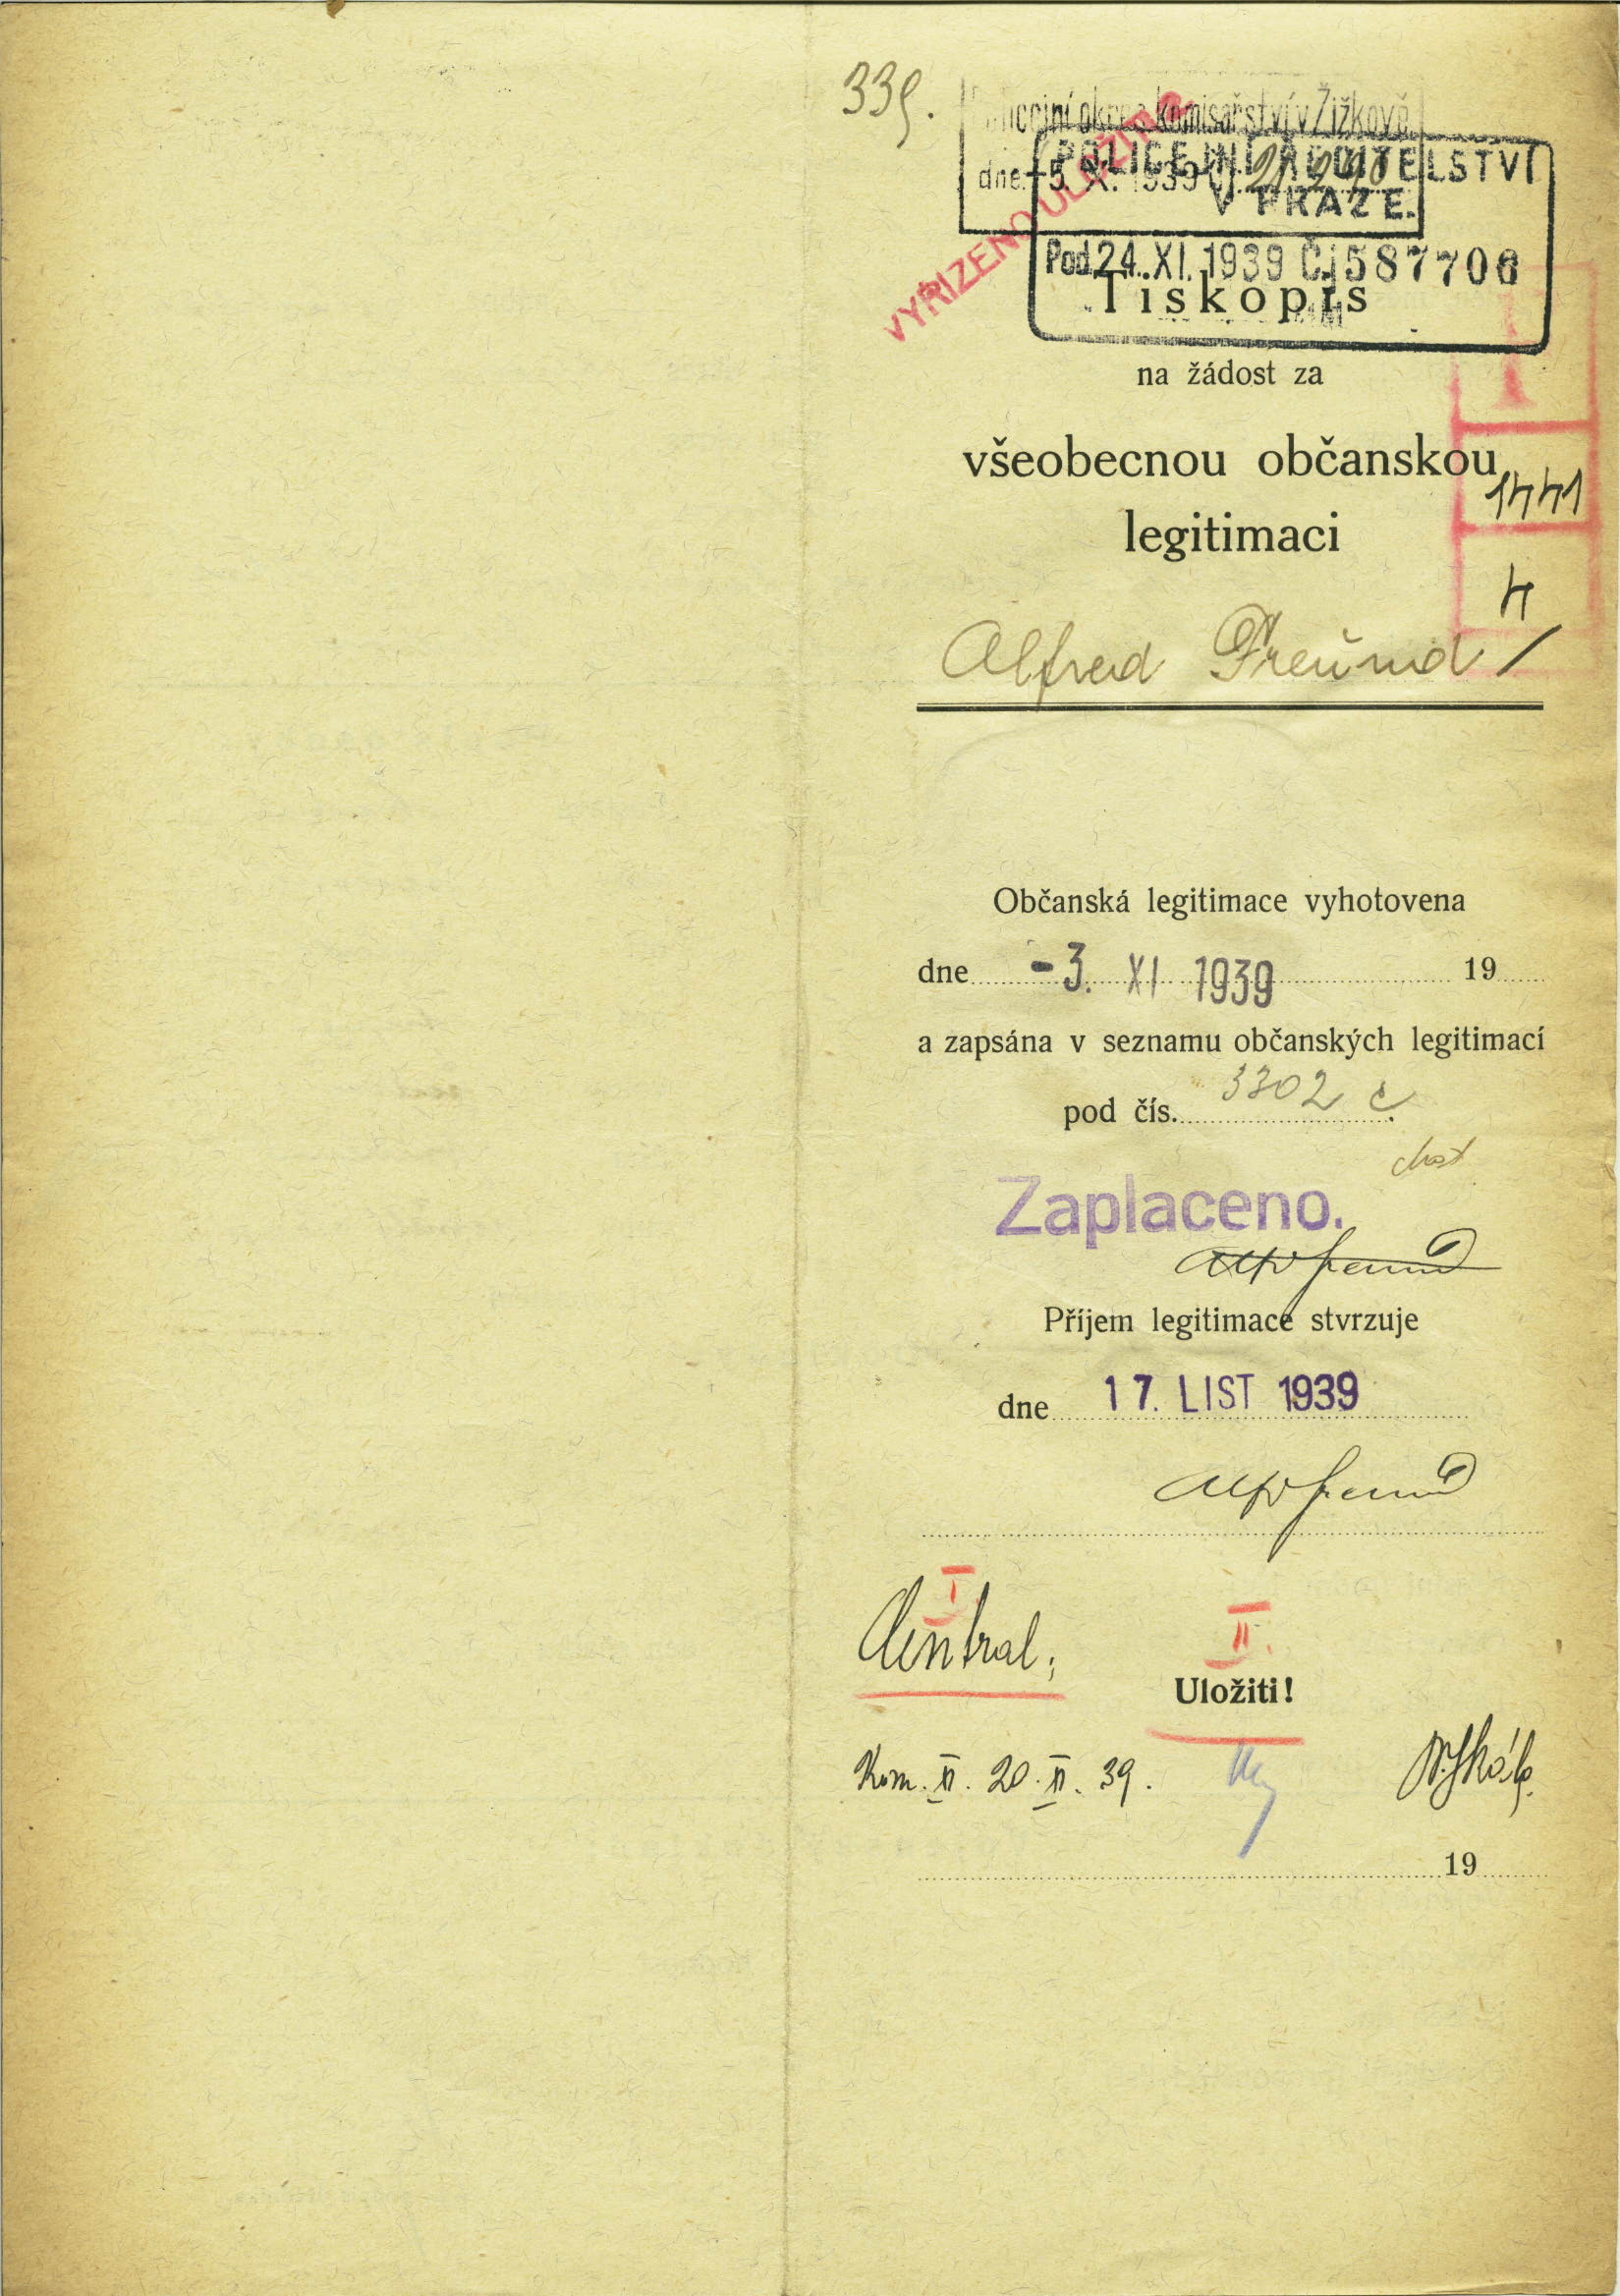 339.
Policejní okres. komisařství v Žižkově.
dne: -5. X. 1939 Čj.
POLICEJNÍ ŘEDITELSTVÍ
V PRAZE.
Pod. 24. XI. 1939 Č.j. 587706
VYŘÍZENO ULOŽITI
Tiskopis
na žádost za
všeobecnou občanskou
1441
legitimaci
4
Alfred Freund /
Občanská legitimace vyhotovena
dne -3. XI 1939 19
a zapsána v seznamu občanských legitimací
pod čís. 3302
Zaplaceno.
Alfr Freund
Příjem legitimace stvrzuje
dne 17. LIST 1939
Alfr Freund
I.
Central.
II.
Uložiti!
Kom. II. 20. II. 39.
19